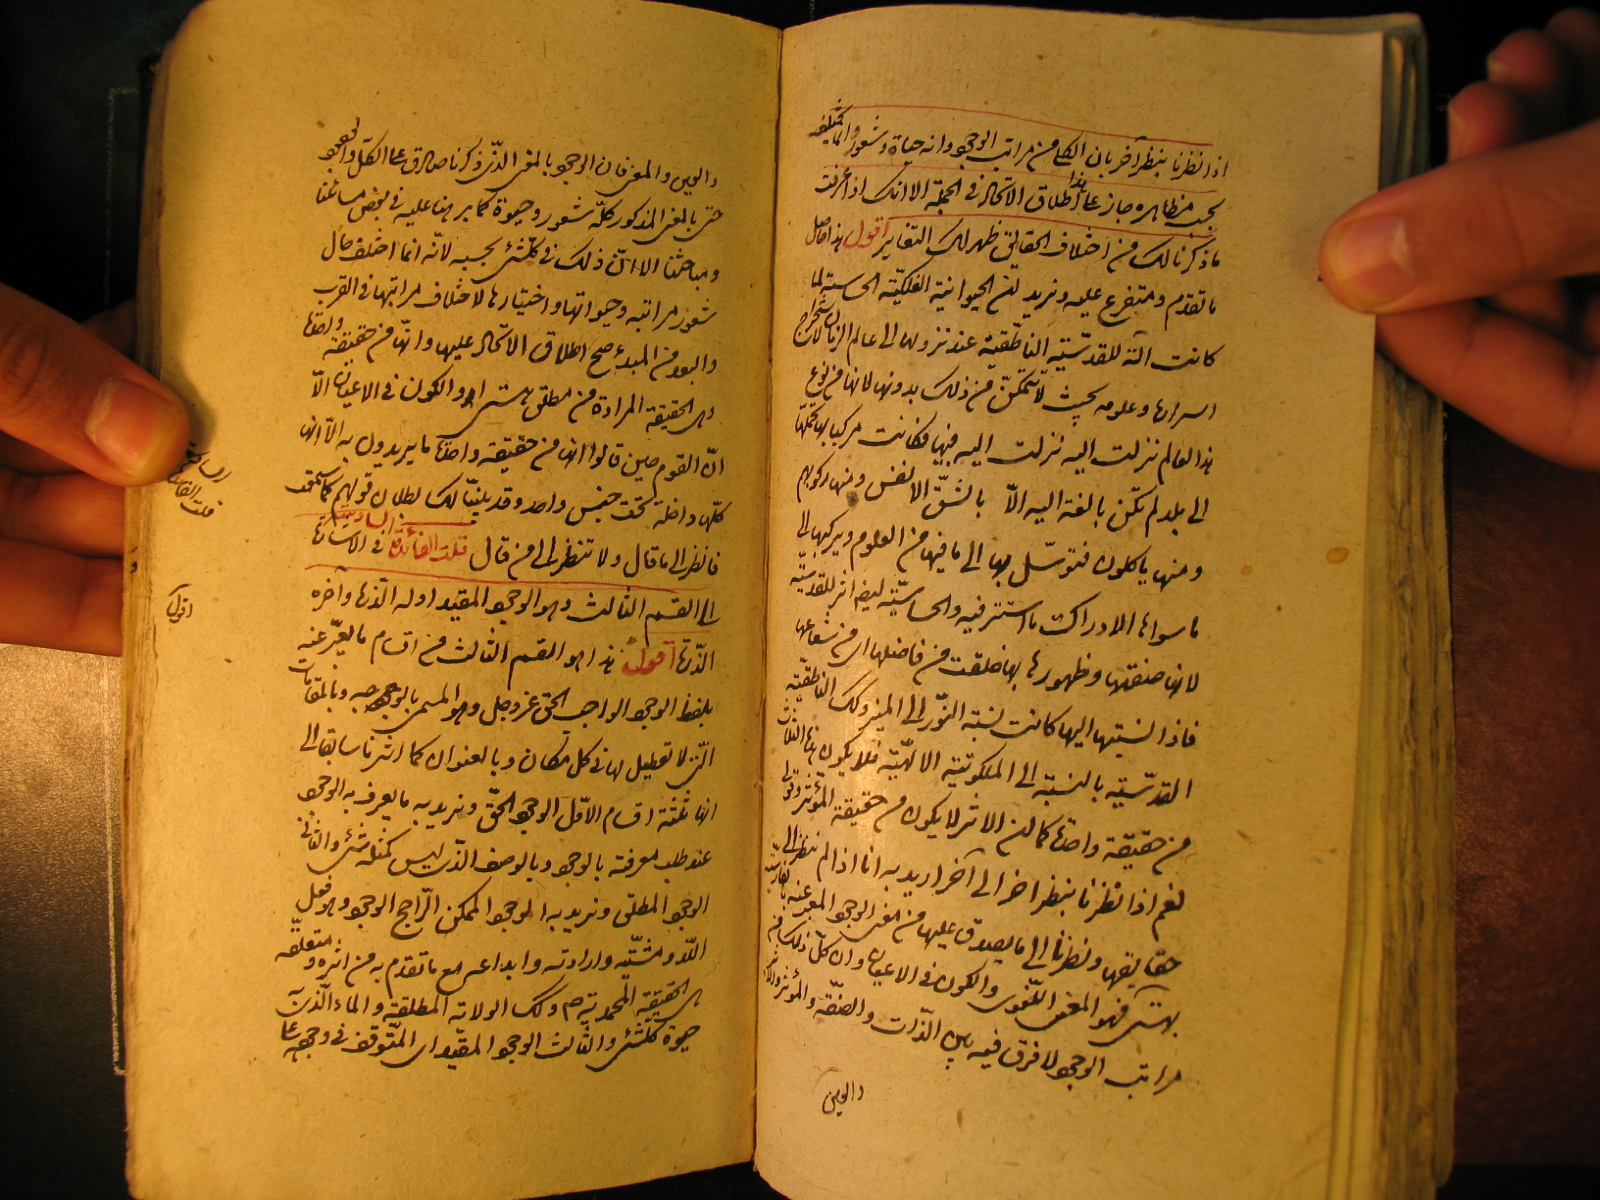 اذا نظرنا بنظر آخر بان الكل من مراتب الوجود وانه حياة وشعور وانما يختلف
بحسب مظاهره جاز على هذا اطلاق الاتحاد في الجملة الا انك اذا عرفت
ما ذكرنا لك من اختلاف الحقائق ظهر لك التغاير اقول هذا حاصل
ما تقدم ومتفرع عليه ونريد ان الحيوانية الفلكية الحساسة لما
كانت آلة للقدسية الناطقية عند نزولها الى عالم الزمان لاستخراج
اسرارها وعلومه بحيث لا تتمكن من ذلك بدونها لانها من نوع
هذا العالم نزلت اليه نزلت اليه فيها فكانت مركبا لها تحملها
الى بلد لم تكن بالغة اليه الا بشق الانفس ومنها ركوبهم
ومنها ياكلون فتوسل بها الى ما فيها من العلوم ويركبها الى
ما سواها الادراك ما استتر فيه والحساسية ايضا اثر للقدسية
لانها صفتها وظهورها بها خلقت من فاضلها اى من شعاعها
فاذا نسبتها اليها كانت نسبة النور الى المنير وكذلك الناطقية
القدسية بالنسبة الى الملكوتية الالهية فلا يكون هذا الثلاث
من حقيقة واحدة كما ان الاثر لا يكون من حقيقة المؤثر وقولى
نعم اذا نظرنا بنظر آخر الى آخر اريد به انا اذا لم ننظر الى
حقايقها ونظرنا الى ما يصدق عليها من معنى الوجود المعبر عنه بالفارسية
بهستى فهو المعنى اللغوى والكون في الاعيان وان كل ذلك من
مراتب الوجود لا فرق فيه بين الذات والصفة والمؤثر والاثر
والعين
والعين والمعنى فان الوجود بالمعنى الذى ذكرنا صادق على الكل والوجود
حتى بالمعنى المذكور كله شعور وحيوة كما برهنا عليه في بعض مسائلنا
ومباحثنا الا ان ذلك في كلشئ بحسبه لانه انما اختلف حال
شعور مراتبه وحيواتها واختيارها لاختلاف مراتبها في القرب
والبعد من المبدء صح اطلاق الاتحاد عليها وانها من حقيقة واحدة
وهى الحقيقة المرادة من مطلق هستى او الكون في الاعيان الا
ان القوم حين قالوا انها من حقيقة واحدة ما يريدون به الا انها
كلها داخلة تحت جنس واحد وقد بينا لك بطلان قولهم كما سمعت
فانظر الى ما قال ولا تنظر الى من قال قلت الفائدة السادسة في الاشارة
الى القسم الثالث وهو الوجود المقيد اوله الذرة وآخره
الذرة اقول هذا هو القسم الثالث من اقسام ما يعبر عنه
بلفظ الوجود الواجب الحق عز وجل وهو المسمى بالوجود وبالمقامات
التى لا تعطيل لها في كل مكان وبالعنوان كما اشرنا سابقا الى
انها ثلثة اقسام الاول الوجود الحق ونريد به ما يعرف به الوجود
عند طلب معرفته بالوجود وبالوصف الذى ليس كمثله شئ والثانى
الوجود المطلق ونريد به الوجود الممكن الراجح الوجود وهو فعل
الله ومشيته وارادته وابداعه مع ما تقدم به من اثره ومتعلقه
وهى الحقيقة المحمدية ص وتلك الولاية المطلقة والماء الذى به
حيوة كلشئ والثالث الوجود المقيد اى المتوقف في وجوده على
قلت الفائدة
اقول